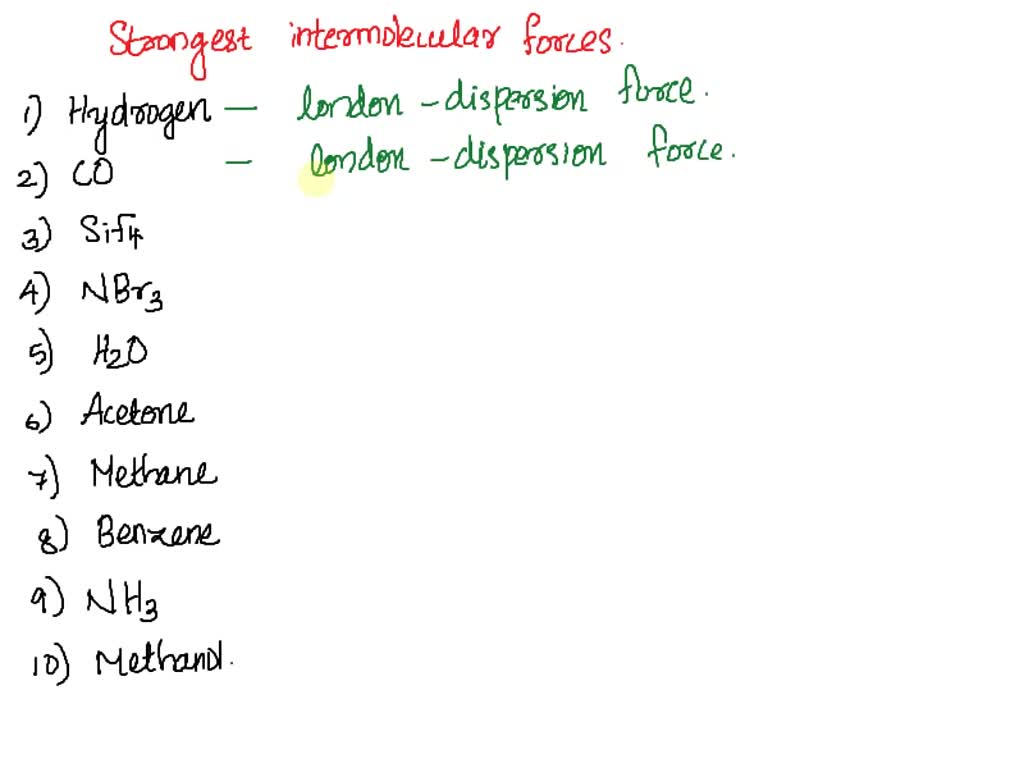 Strongest intermolecular forces.
1) Hydrogen — london - dispersion force.
2) CO — london - dispersion force.
3) SiF4
4) NBr3
5) H2O
6) Acetone
7) Methane
8) Benzene
9) NH3
10) Methanol.